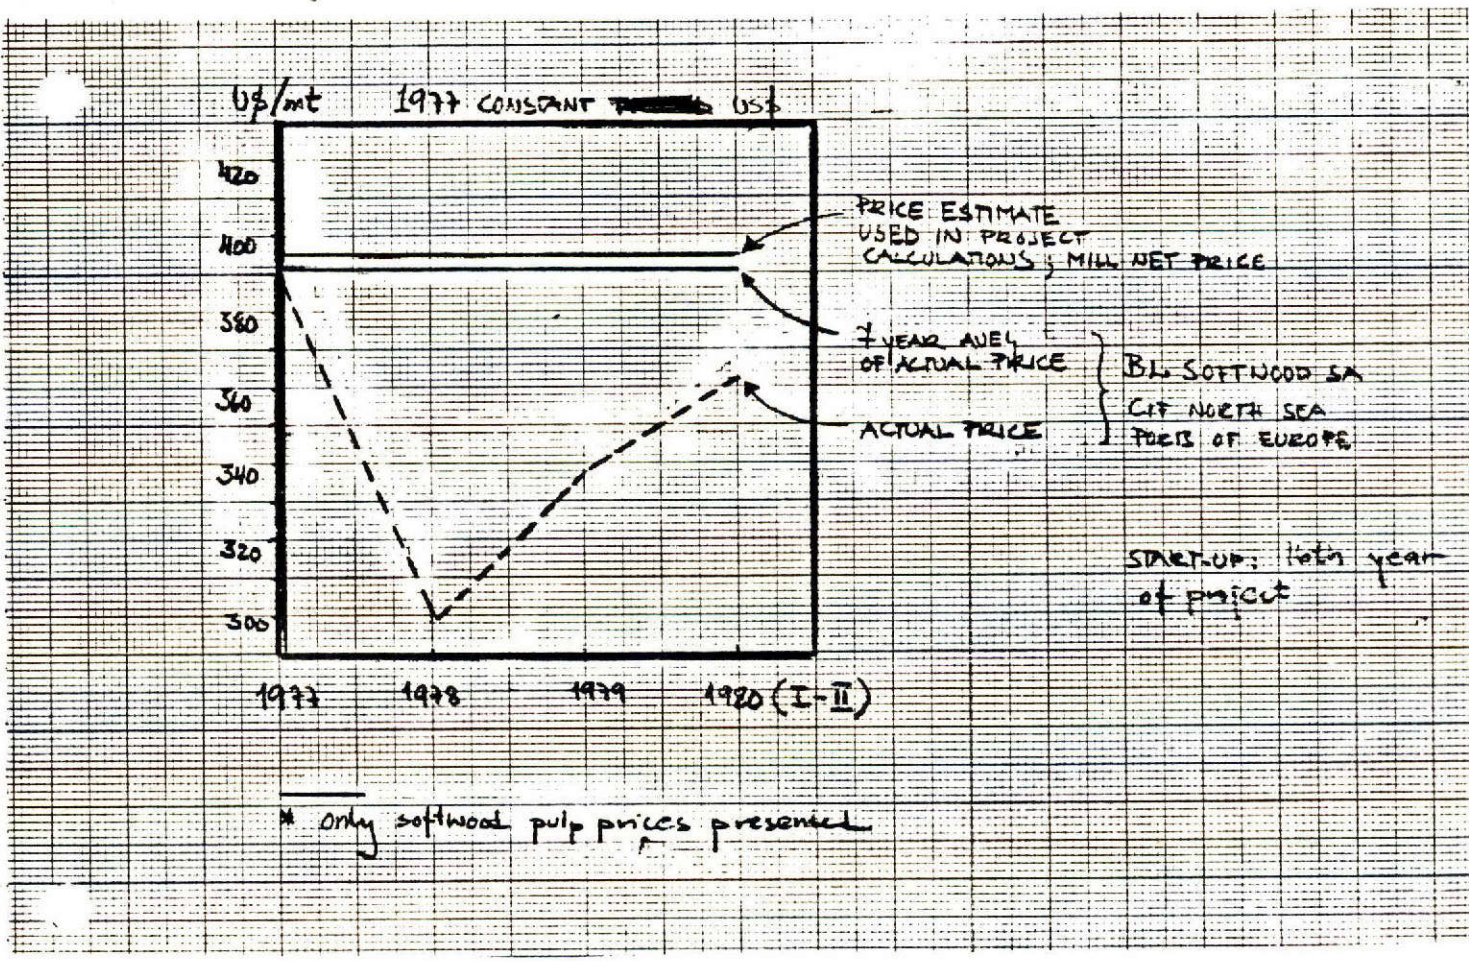 U$/mt 1977 CONSTANT US$
420
400
380
360
340
320
300
1977 1978 1979 1980 (I-II)
PRICE ESTIMATE
USED IN PROJECT
CALCULATIONS; MILL NET PRICE
7 YEAR AVEG
OF ACTUAL PRICE
ACTUAL PRICE
BL SOFTWOOD SA
CIF NORTH SEA
PORTS OF EUROPE
START-UP: year
of project
* only softwood pulp prices presented